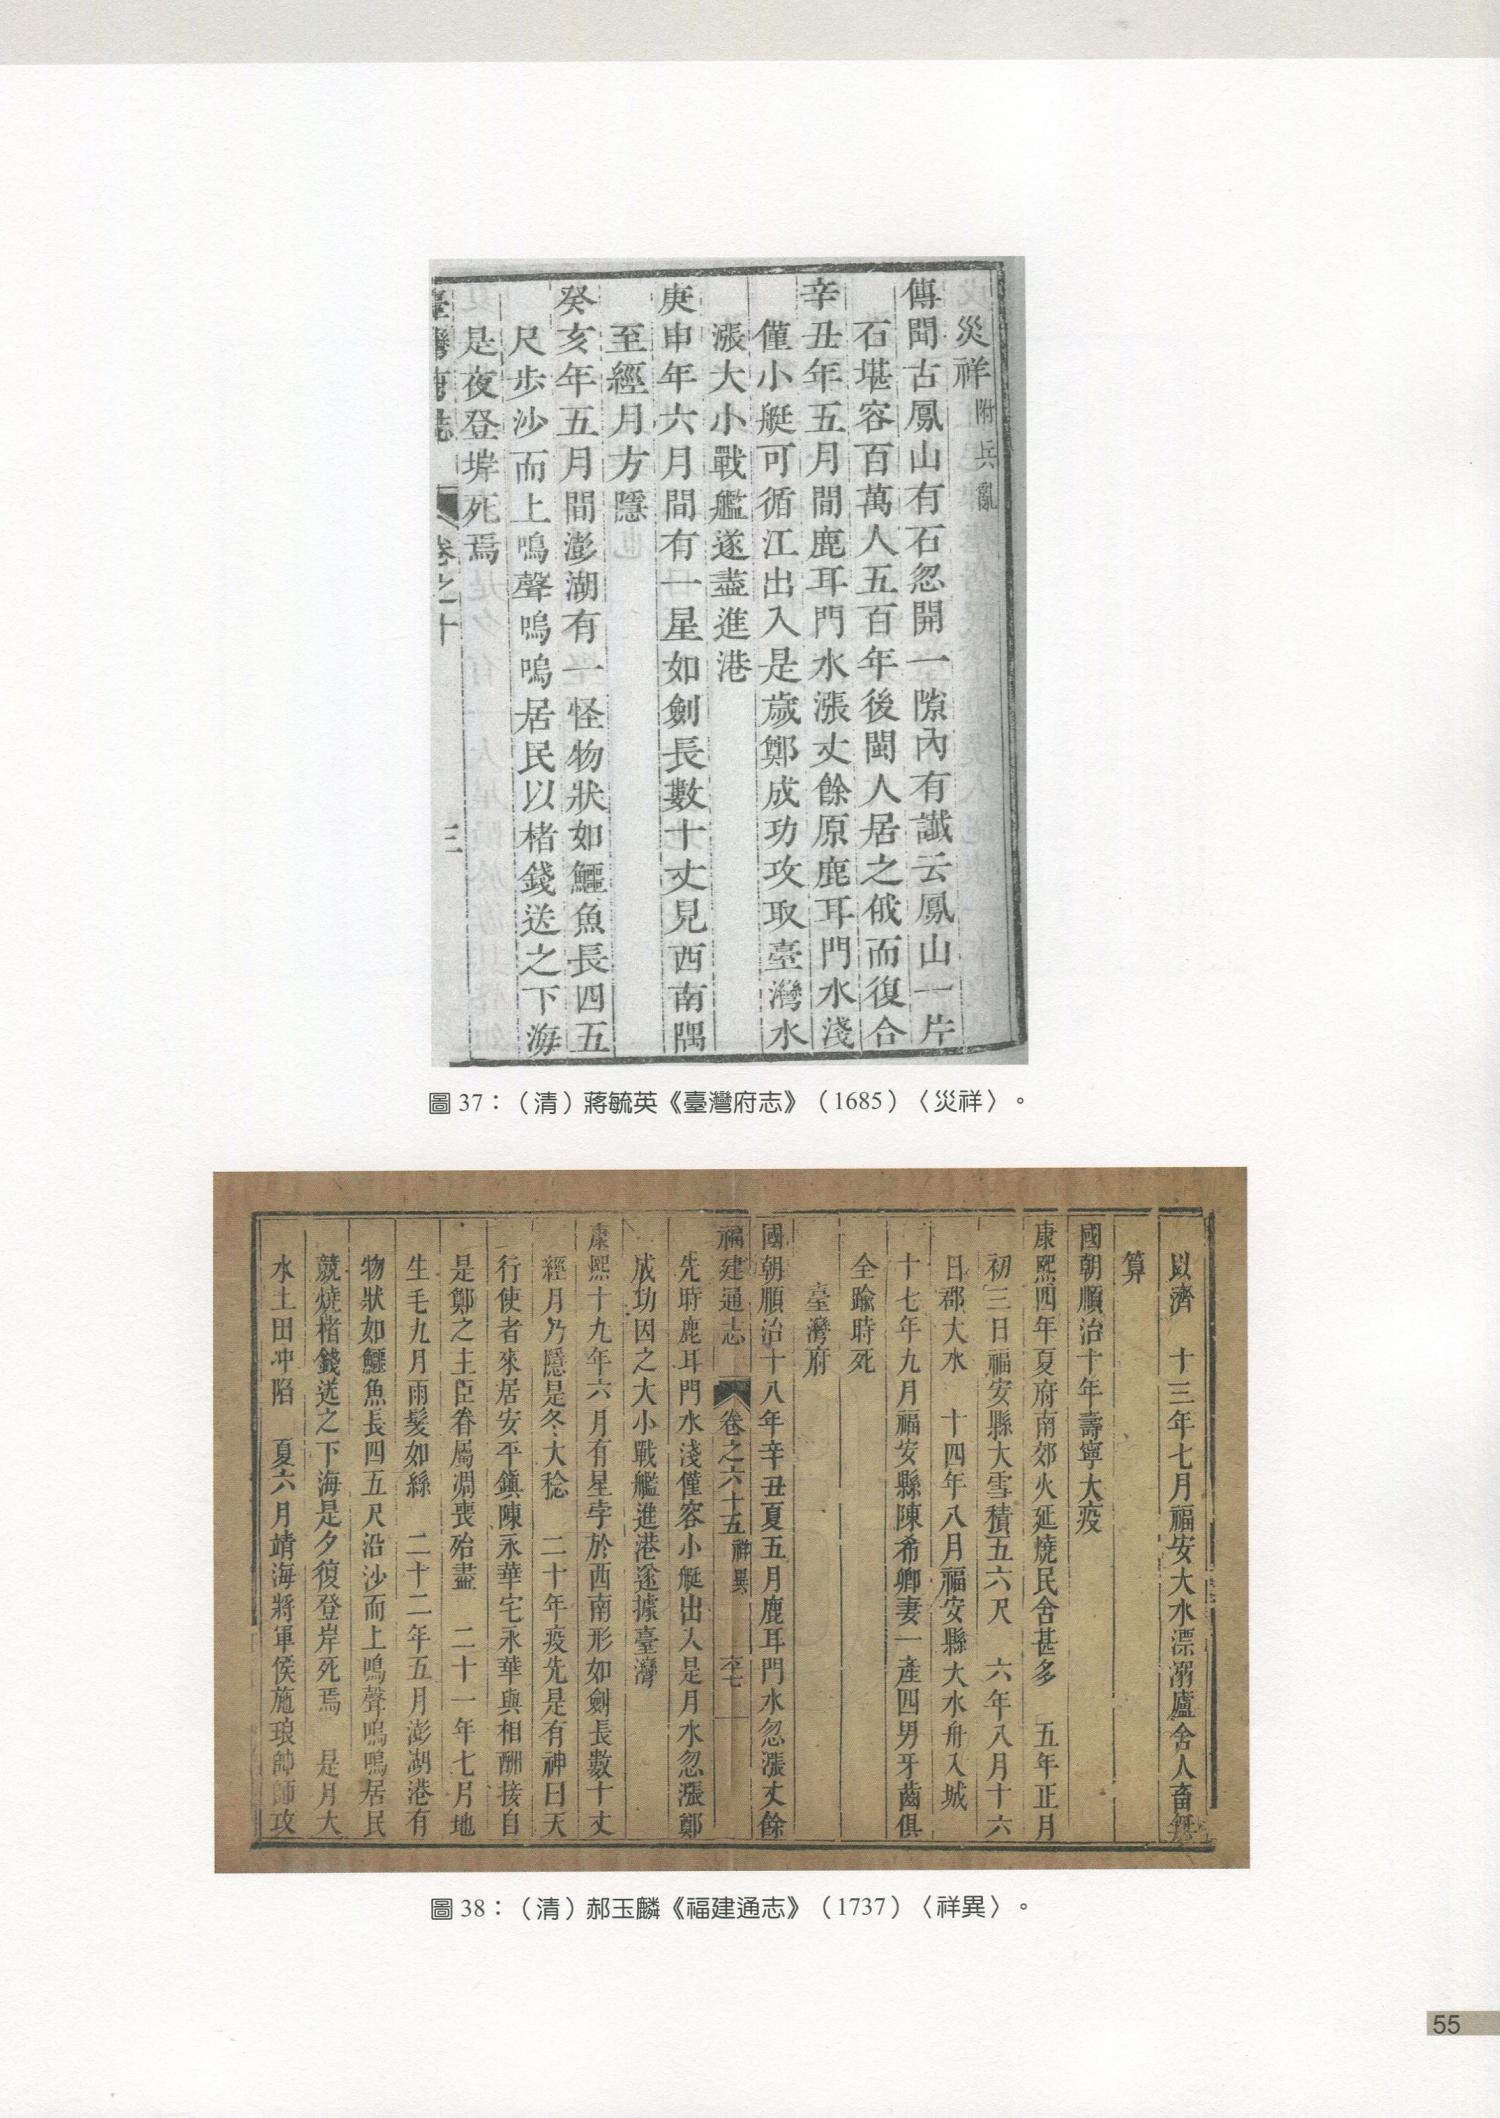 災祥附兵亂
傳聞古鳳山有石忽開一隙內有讖云鳳山一片
石堪容百萬人五百年後閩人居之俄而復合
辛丑年五月間鹿耳門水漲丈餘原鹿耳門水淺
僅小艇可循江出入是歲鄭成功攻取臺灣水
漲大小戰艦遂盡進港
庚申年六月間有一星如劍長數十丈見西南隅
至經月方隱
癸亥年五月間澎湖有一怪物狀如鱷魚長四五
尺步沙而上鳴聲嗚嗚居民以楮錢送之下海
是夜登岸死焉
臺灣府誌 卷之十 三
圖 37：（清）蔣毓英《臺灣府志》（1685）〈災祥〉。
以濟 十三年七月福安大水漂溺廬舍人畜無
算
國朝順治十年壽寧大疫
康熙四年夏府南郊火延燒民舍甚多 五年正月
初三日福安縣大雪積五六尺 六年八月十六
日郡大水 十四年八月福安縣大水舟入城
十七年九月福安縣陳希卿妻一產四男牙齒俱
全踰時死
臺灣府
國朝順治十八年辛丑夏五月鹿耳門水忽漲丈餘
福建通志 卷之六十五 祥異 六七
先時鹿耳門水淺僅容小艇出入是月水忽漲鄭
成功因之大小戰艦進港遂據臺灣
康熙十九年六月有星孛於西南形如劍長數十丈
經月乃隱是冬大稔 二十年疫先是有神曰天
行使者來居安平鎮陳永華宅永華與相酬接自
是鄭之主臣眷屬凋喪殆盡 二十一年七月地
生毛九月雨髮如絲 二十二年五月澎湖港有
物狀如鱷魚長四五尺沿沙而上鳴聲嗚嗚居民
競燒楮錢送之下海是夕復登岸死焉 是月大
水土田冲陷 夏六月靖海將軍侯施琅帥師攻
圖 38：（清）郝玉麟《福建通志》（1737）〈祥異〉。
55